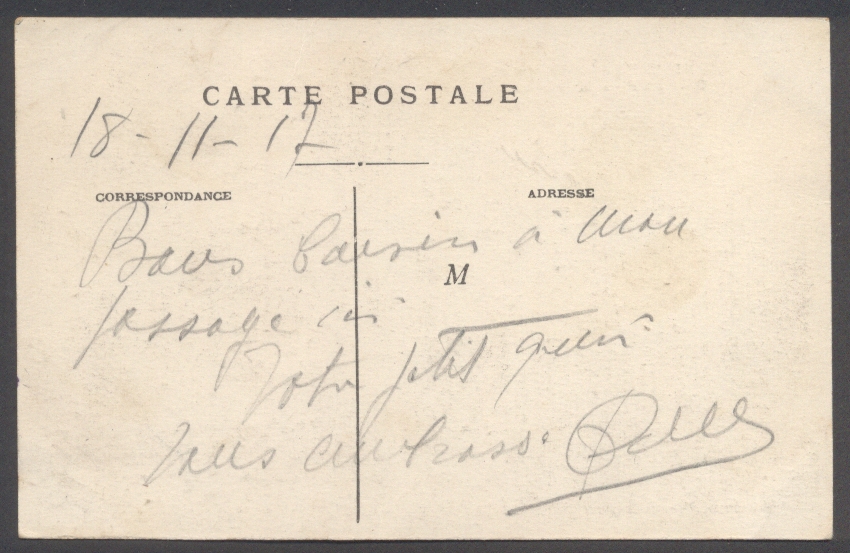 CARTE POSTALE
18-11-17
CORRESPONDANCE
ADRESSE
Bons baisers à mon
M
passage ici
Votre petit
vous embrasse